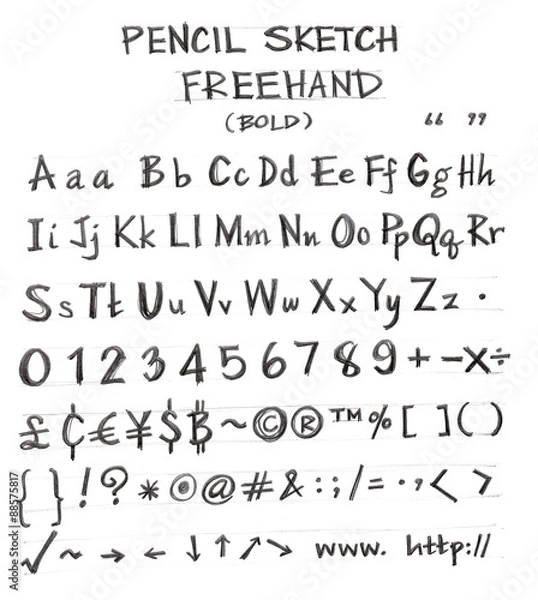 PENCIL SKETCH
FREEHAND
(BOLD) “ ”
A a a B b C c D d E e F f G g H h
I i J j K k L l M m N n O o P p Q q R r
S s T t U u V v W w X x Y y Z z ·
0 1 2 3 4 5 6 7 8 9 + − × ÷
£ ¢ € ¥ $ ₿ ~ © ® ™ % [ ] ( )
{ } ! ? * ⊙ @ # & : ; / = · , < >
✓ ~ → ← ↓ ↑ ↗ ↘ www. http://
Adobe Stock | #88575817